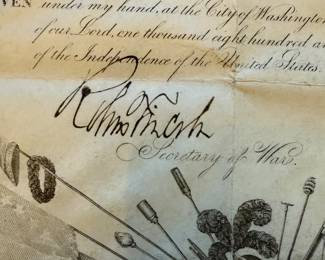 VEN under my hand, at the City of Washington
of our Lord, one thousand eight hundred a
of the Independence of the United States.
Secretary of War.